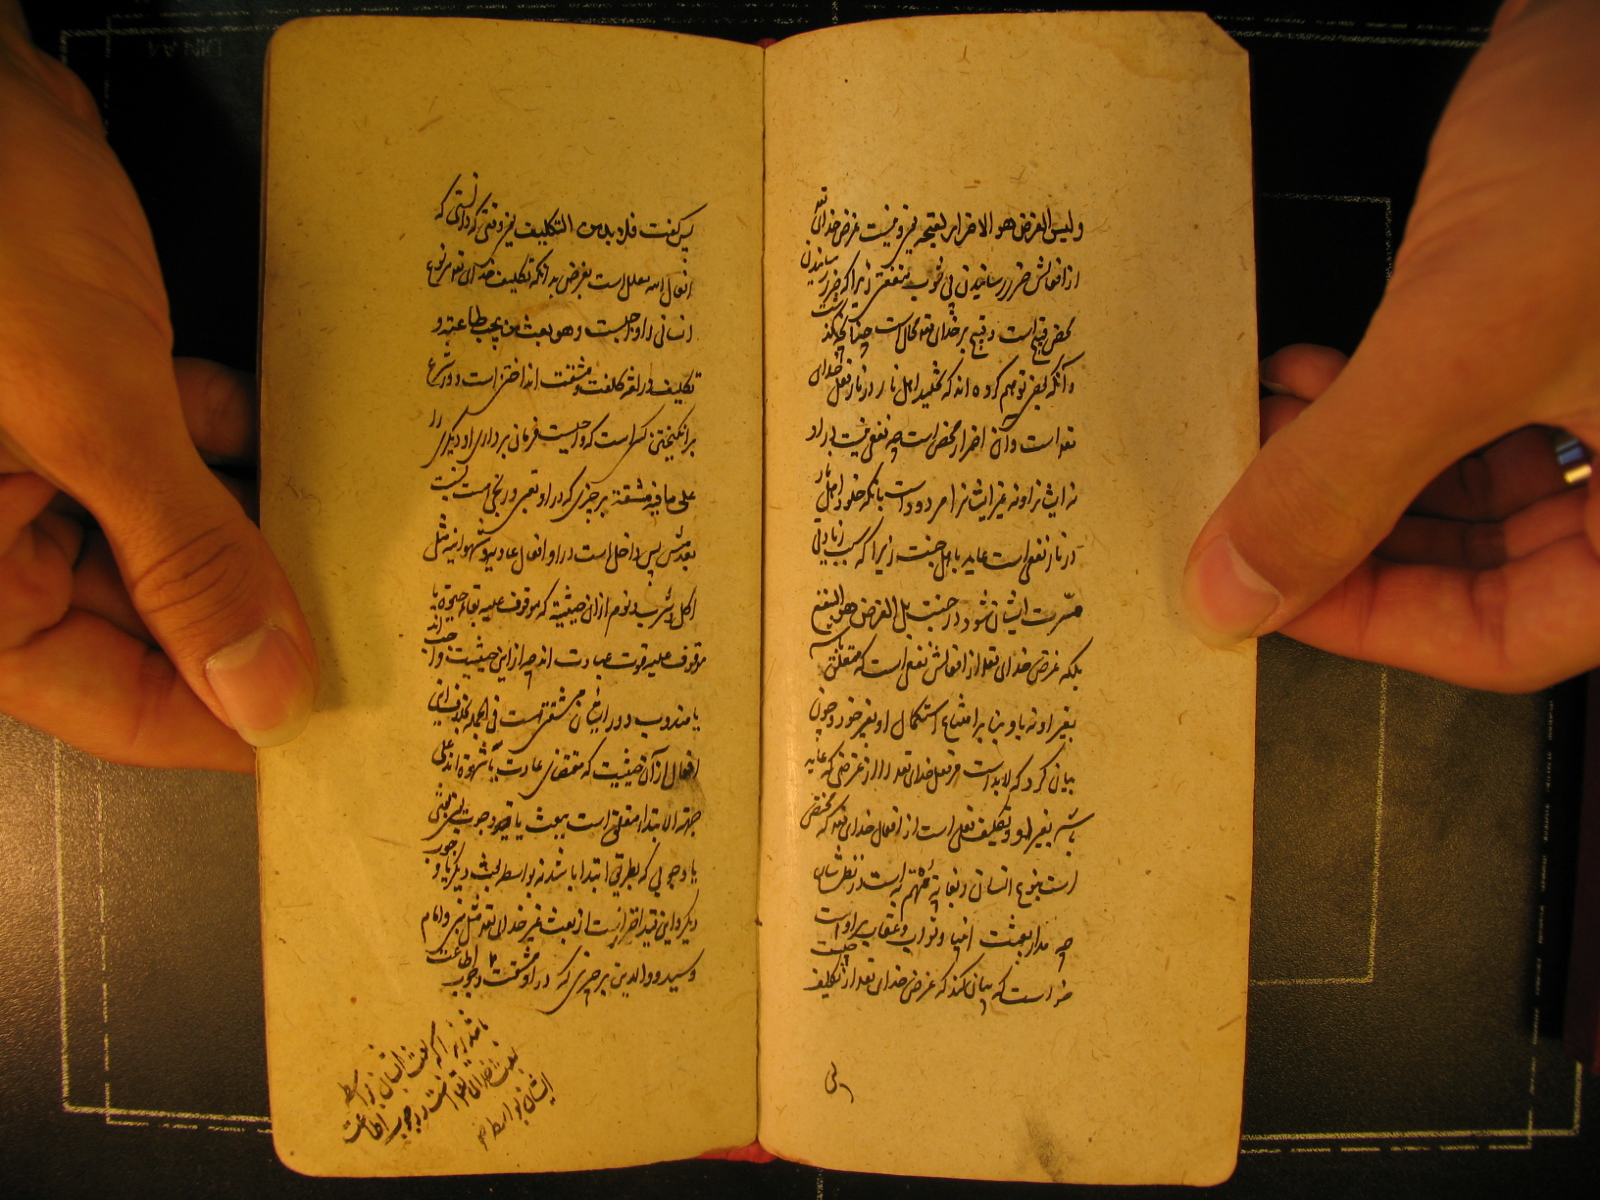 و لیس الغرض هو الاضرار لقبحه یعنی و نیست غرض خدای تعه
از افعالش ضرر رسانیدن بی شوب منفعتی زیرا که ضرر رسانیدن
محض قبیح است و قبیح بر خدای تعه محال است چنانچه گذشت
و آنکه بعضی توهم کرده اند که تخلید اهل نار در نار فعل خدای
تعه است و آن اضرار محض است چه نفعی نیست در او
نه ایشانرا و نه غیر ایشانرا مردود است بانکه خلود اهل نار
در نار نفعی است عاید باهل جنت زیرا که سبب زیادتی
مسرت ایشان شود در جنت بل الغرض هو النفع
بلکه غرض خدای تعه از افعالش نفعی است که متعلق است
بغیر او نه باو بنا بر امتناع استکمال او بغیر خود و چون
بیان کرد که لابد است مر فعل خدای تعه را از غرضی که عاید
باشد بغیر او و تکلیف فعلی است از افعال خدای تعه که مختص
است بنوع انسان و بغایت مهتم به است در نظر شارع
چه مدار بعثت انبیا و ثواب و عقاب بر او است
خواست که بیان کند که غرض خدای تعه از تکلیف چیست
پس
پس گفت فلا بد من التکلیف یعنی وقتی که دانستی که
افعال الله معلل است بغرض بدانکه تکلیف خدای تعه مر نوع
انسانی را واجبست و هو بعث من یجب طاعته و
تکلیف در لغه کلفت و مشقت انداختن است و در شرع
برانگیختن کسی است که واجبست فرمان برداری او دیگری را
علی ما فیه مشقة بر چیزی که در او تعبی و رنجی است نسبت
بعدمش پس داخل است در او افعال عادیه و شهوانیه مثل
اکل و شرب و نوم از ان حیثیة که موقوف علیه بقاء حیوة یا
موقوف علیه قوت عبادت اند چه از این حیثیت واجب اند
یا مندوب و در ایشان مشقتی است فی الجمله بخلاف این
افعال از آن حیثیت که مقتضای عادت یا شهوة اند علی
جهة الابتداء متعلق است ببعث یا بوجوب یعنی بعثی
یا وجوبی که بطریق ابتدا باشد نه بواسطه بعث دیگر یا وجوب
دیگر و این قید احتراز است از بعث غیر خدای تعه مثل نبی و امام
و سید و والدین بر چیزی که در او مشقت و وجوب اطاعت
باشد زیرا که بعث ایشان بواسطه
بعث خدای تعه است و وجوب اطاعت
ایشان بواسطه